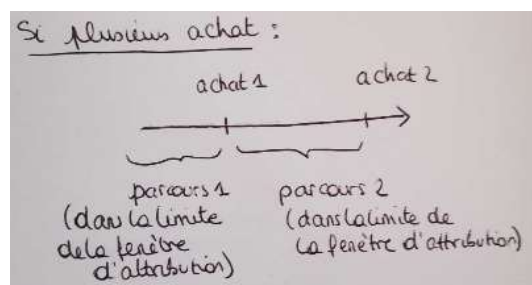 Si plusieurs achat :
achat 1
achat 2
parcours 1
(dans la limite
de la fenêtre
d'attribution)
parcours 2
(dans la limite de
la fenêtre d'attribution)